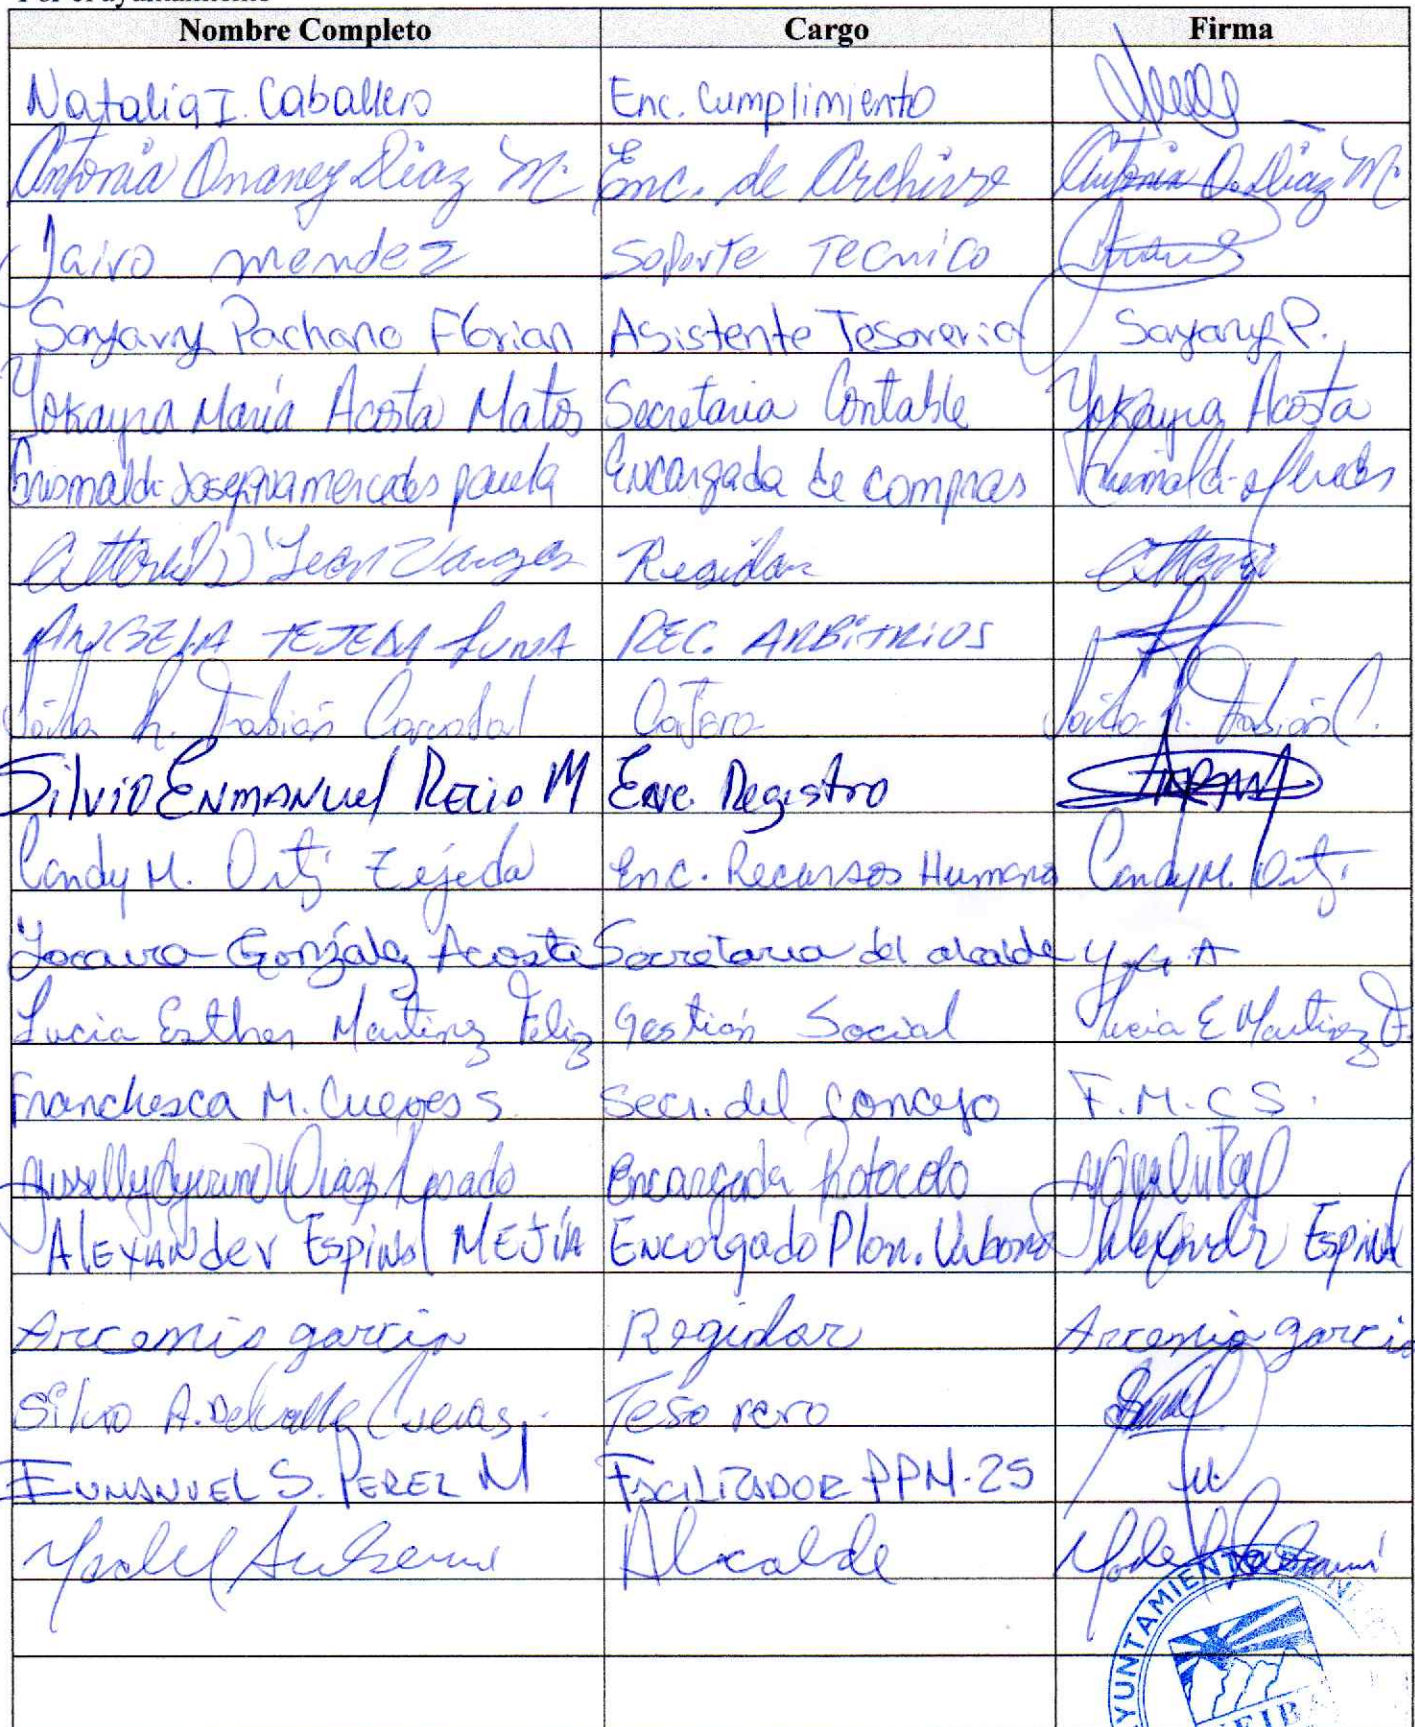 Por el ayuntamiento
Nombre Completo Cargo Firma
Natalia I. Caballero Enc. Cumplimiento
Antonia Onaney Diaz M. Enc. de Archivo Antonia O. Diaz M.
Jairo mendez Soporte Tecnico
Sayavy Pachano Florian Asistente Tesoreria Sayavy P.
Yokayra María Acosta Matos Secretaria Contable Yokayra Acosta
Grismaldi Josefina mercedes paula Encargada de compras
Vargas Regidor
ANGELA TEJEDA LUNA REC. ARBITRIOS
R. Fabián Carvajal Cajera R. Fabián C.
Silvio ENMANUEL Recio M Enc. Registro
Candy M. Ortiz Tejeda Enc. Recursos Humano Candy M. Ortiz
Yocaura González Acosta Secretaria del alcalde Y.G.A
Lucia Esther Martinez Feliz Gestión Social Lucia E Martinez F.
Franchesca M. Cuevas S. Secr. del Concejo F.M.C S.
Diaz Encargada Protocolo
Alexander Espinal MEJÍA Encargado Plan. Urbano Alexander Espinal
Arcemio garcia Regidor Arcenio garcia
Silvio A. Del Valle Cuevas Tesorero
EMMANUEL S. PEREZ M FACILITADOR PPM-25
Alcalde
AYUNTAMIENTO
NEIBA